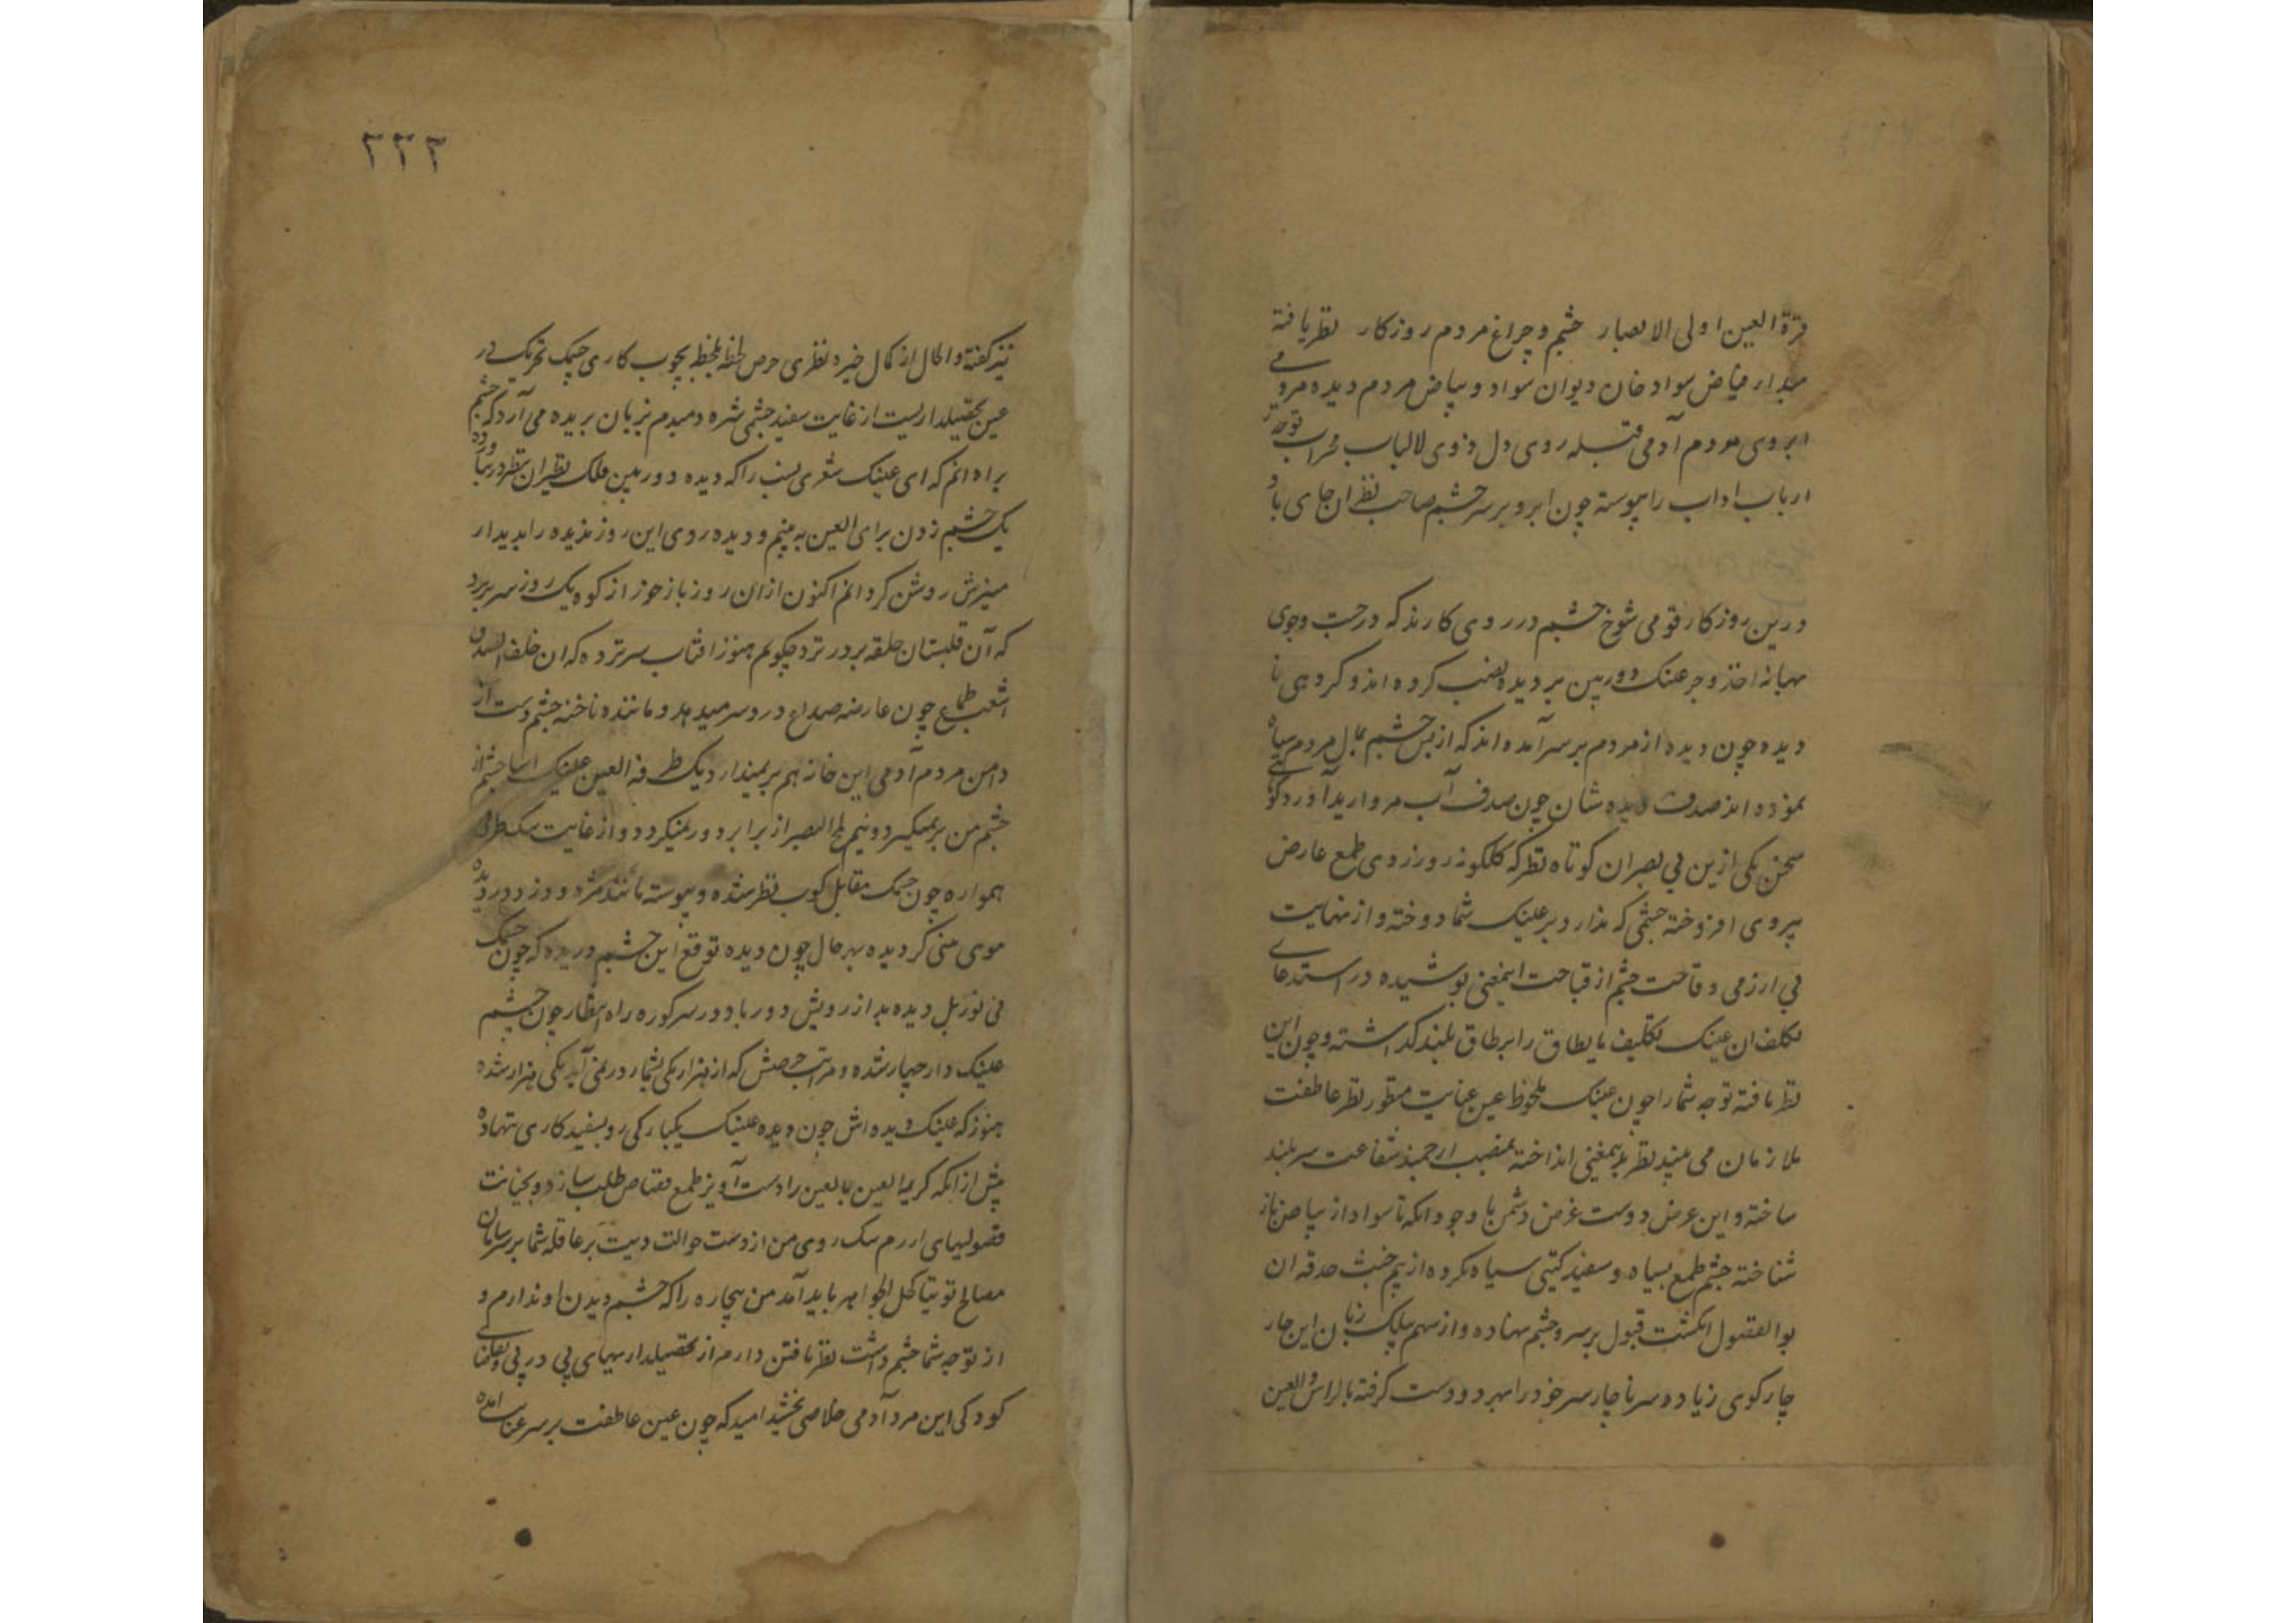 قرة العین اولی الابصار چشم و چراغ مردم روزکار نظر یافته
مبداء فیاض سواد خان دیوان سواد و بیاض مردم دیده مردمی
ابروی مردم آدمی قبله روی دل ذوی لالباب محراب توجه
ارباب اداب را پیوسته چون ابرو بر سر چشم صاحب نظران جای باد
درین روزکار قومی شوخ چشم در روی کارند که در جست وجوی
بهانه اخذ و جر عینک دوربین بر دیده نصب کرده اند و کروهی نا
دیده چون دیده از مردم بر سر آمده اند که از بس چشم بمال مردم سیاه
نموده اند صدف دیده شان چون صدف آب مروارید آورد کوتهی
سخن یکی ازین بی بصران کوتاه نظر که کلکونه زورزدی طمع عارض
بیروی افروخته چشمی که ندارد بر عینک شما دوخته و از نهایت
بی ارزمی و قاحت چشم از قباحت اینمعنی پوشیده در استدعای
تکلف ان عینک تکلیف ما یطاق را بر طاق بلند کذاشته و چون این
نظر یافته توجه شما را چون عینک ملحوظ عین عنایت منظور نظر عاطفت
ملازمان می بیند نظر بدینمعنی انداخته بمنصب ارجمند شفاعت سربلند
ساخته و این عرض دوست غرض دشمن با وجود انکه تا سواد از بیاض باز
شناخته چشم طمع بسیاه و سفید کیتی سیاه نکرده از بیم خبث حدقه ان
بوالفضول انکشت قبول بر سر و چشم نهاده و از سهم پلپک زبان این چار
چار کوی زیاده سر ناچار سر خود را بهر دو دست کرفته بالراس والعین
۲۲۲
نیز کفته و الحال از کمال خیره نظری حرص لحظه بلحظه بچوب کاری چمک تحریک در
عین تحصیلداریست از غایت سفید چشمی شره دمبدم بزبان بریده می آرد که چشم
براه انم که ای عینک شعری نسب را که دیده دوربین فلک نظیر ان نظر در نیاورده
یک چشم زدن برای العین به بینم و دیده روی این روز ندیده را بدیدار
منیرش روشن کردانم اکنون ازان روز باز هنوز از کوه یک روز سر بر نزد
که آن قلبستان حلقه بر در نزد چکویم هنوز افتاب سر نزده که ان خلف الصدق
اشعب طماع چون عارضه صداع درد سر میدهد و ماننده ناخنه چشم دست از
دامن مردم آدمی این خانه هم بر نمیدارد یک طرفه العین عینک اسا چشم از
چشم من بر نمیکیرد و نیم لمح البصر از برابر دور نمیکردد و از غایت تنک ظرفی
همواره چون چمک مقابل کوب نظر شده و پیوسته مانند مژه دو زد در دیده
موی منی کردیده بهر حال چون دیده توقع این چشم دریده که چون چمک
بی نور بل دیده بد از رویش دور باد در سر کوره راه انتظار چون چشم
عینک دار چهار شده و مراتب حرصش که از هزار یکی بشمار در نمی آید یکی هزار شده
هنوز که عینک دیده اش چون دیده عینک یکبارکی رو بسفید کاری ننهاده
پیش از انکه کریمه العین بالعین را دست آویز طمع قصاص طلب سازد و بخیانت
فضولیهای ارزم سک روی من از دست حوالت دیت بر عاقله شما بر سر سامان
مصالح توتیا کحل الجواهر باید آمد من بیچاره را که چشم دیدن او ندارم و
از توجه شما چشم داشت نظر یافتن دارم از تحصیلداریهای پی در پی و تقاضای
کودکی این مرد آدمی خلاصی بخشید امید که چون عین عاطفت بر سر عنایت امده